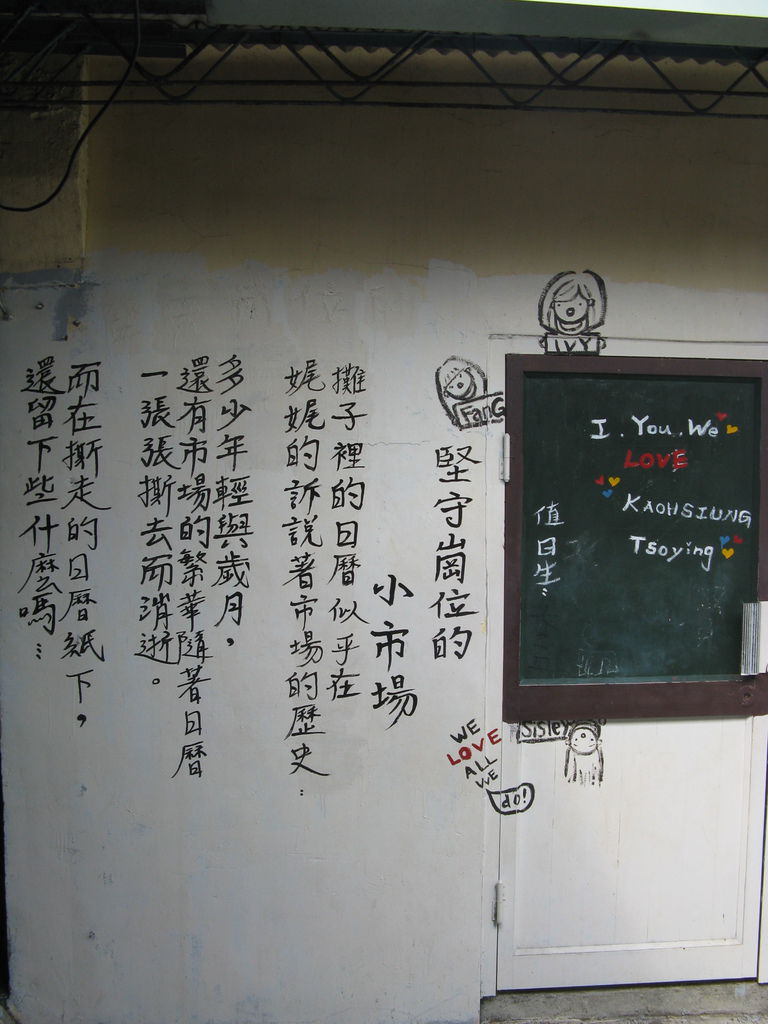 堅守崗位的
小市場
攤子裡的日曆似乎在
娓娓的訴說著市場的歷史…
多少年輕與歲月，
還有市場的繁華隨著日曆
一張張撕去而消逝。
而在撕走的日曆紙下，
還留下些什麼嗎…
IVY
FanG
I . You . We
LOVE
KAOHSIUNG
Tsoying
值日生：
Sisley
WE
LOVE
ALL
WE
do!